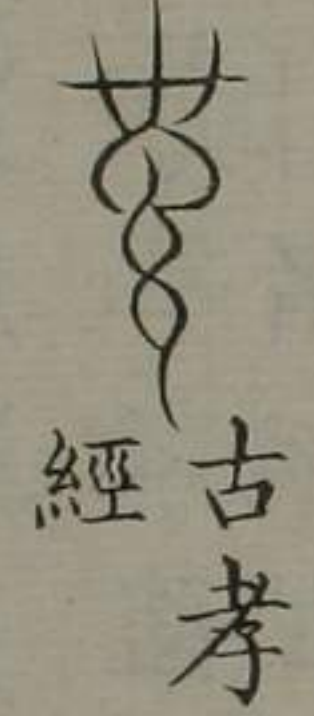 古孝
經